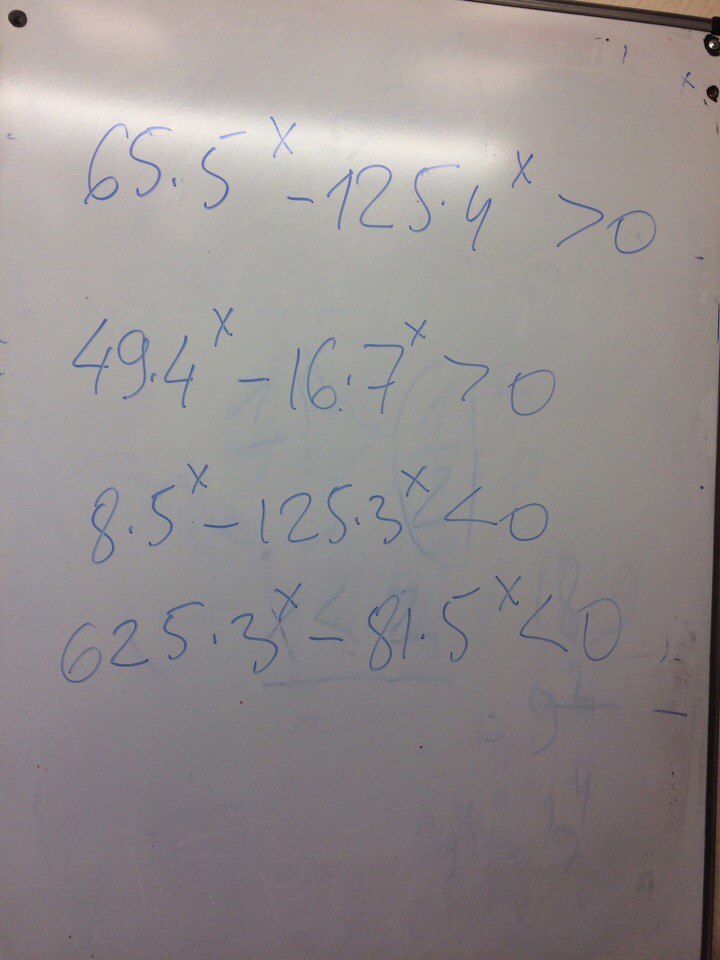 65·5^x - 125·4^x > 0
49·4^x - 16·7^x > 0
8·5^x - 125·3^x < 0
625·3^x - 81·5^x < 0